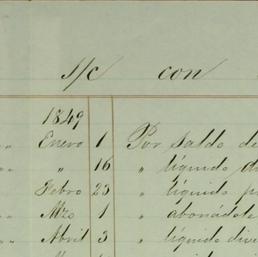 s/c con
1849
" Enero 1 Por Saldo de
" " 16 " líquido di
" Febro 23 " líquido p
" Mzo 1 " abonádole
" Abril 3 " líquido dive